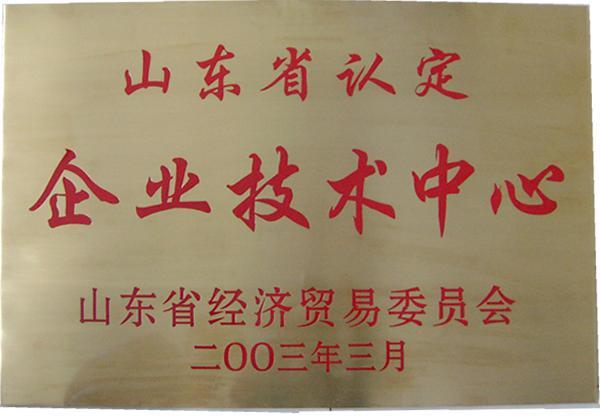 山东省认定
企业技术中心
山东省经济贸易委员会
二OO三年三月